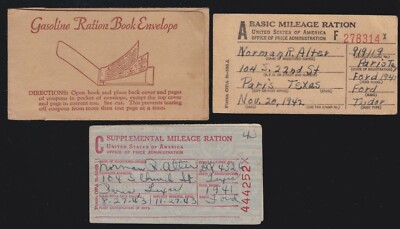 Gasoline Ration Book Envelope
DIRECTIONS: Open book and place back cover and pages
of coupons in pocket of envelope, except the top cover
and page in current use. See cut. This prevents tearing
off coupons from more than one page at a time.
A BASIC MILEAGE RATION
UNITED STATES OF AMERICA
OFFICE OF PRICE ADMINISTRATION
F 278314
Norman R. Alter
104 S. 22nd St
Paris Tex
Ford 1941
Paris Texas
Ford
Nov. 20, 1942
Tudor
C SUPPLEMENTAL MILEAGE RATION
UNITED STATES OF AMERICA
OFFICE OF PRICE ADMINISTRATION
Norman R. Alter
104 S Church St
1941
8-27-43
11-27-43
Ford
444252X